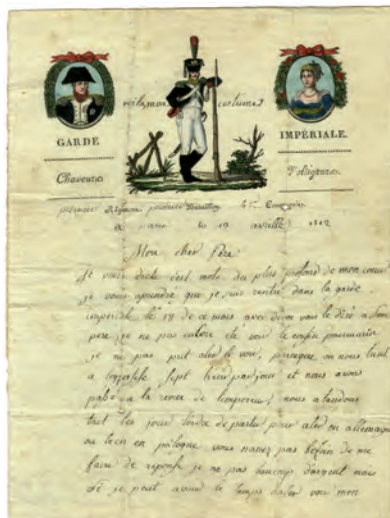 voila mon costume
GARDE
IMPÉRIALE.
Chasseurs
Voltigeurs
premier Régiment premier Bataillon 4me Compagnie
a paris le 19 avrille 1812
Mon cher Père
Je vous dicte dest mots du plus profond de mon coeur
je vous aprendré que je suis rentré dans la garde
imperiale le 18 de ce mois avec
pere je ne pas encore été voir le
je ne pas put aler le voir, parceque on nous tient
a sept heure par jour et nous avons
pasé a la revue de lempereur, nous atandons
tout les jour lordre de partir pour aler en allemagne
ou bien en pologne vous navez pas besoin de me
faire de reponse je ne pas beaucoup d'argent mais
sé je peut avoir le temps daler voir mon